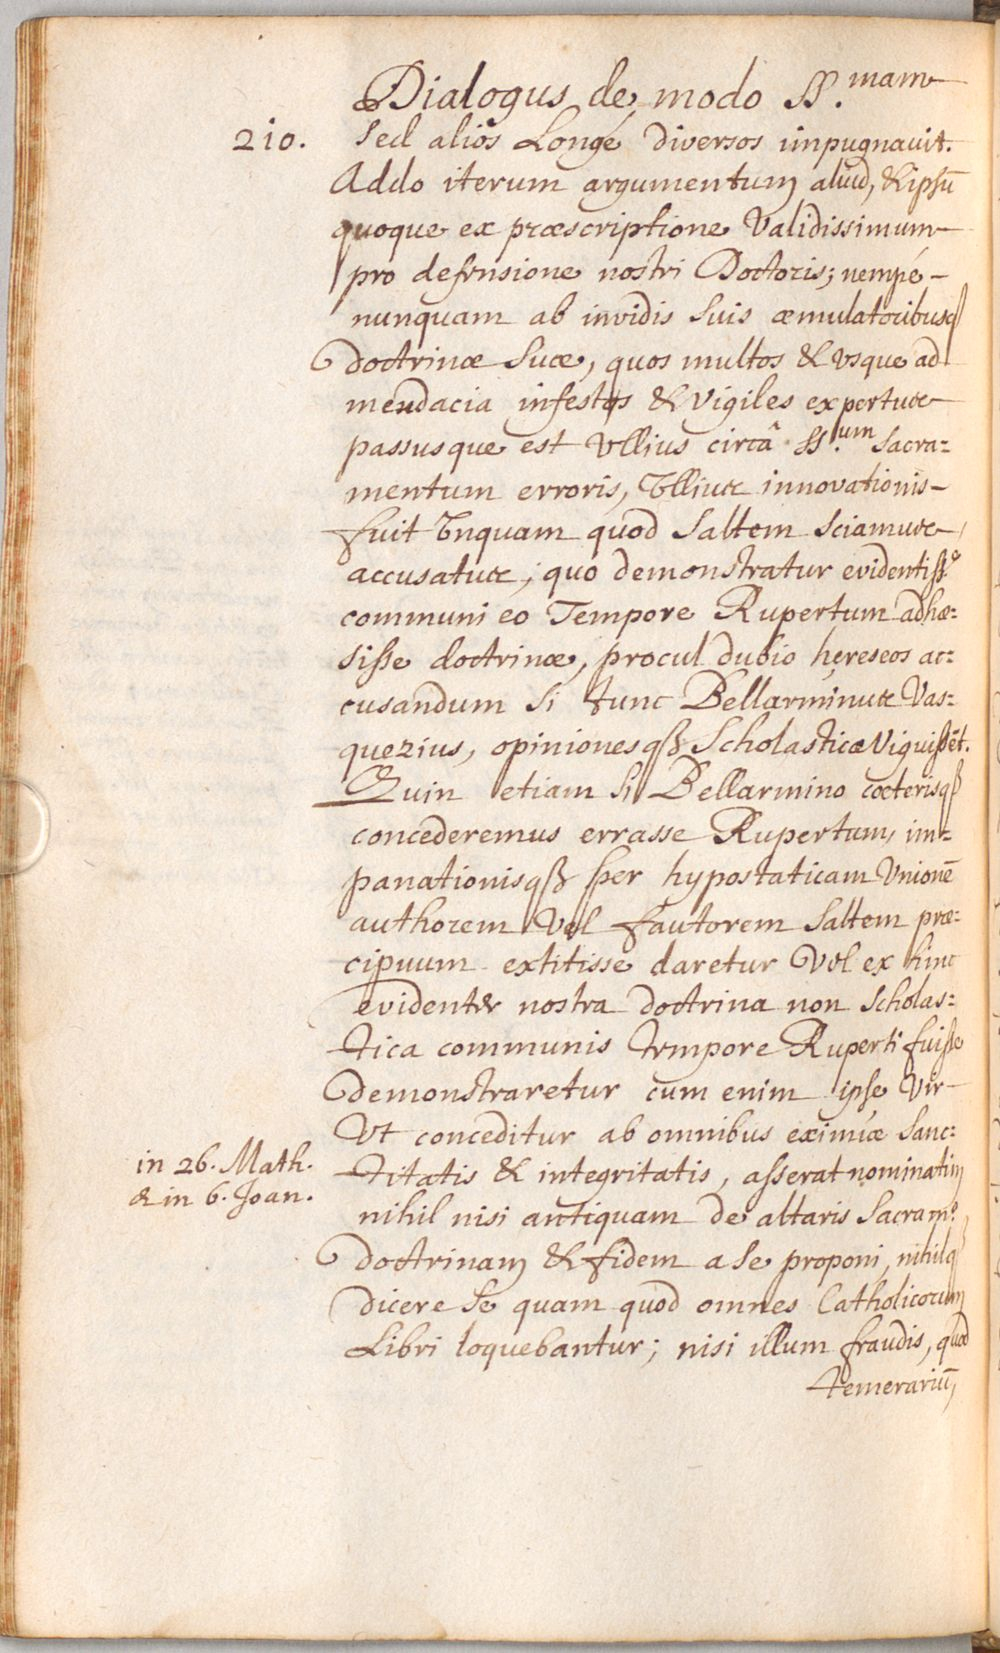 Dialogus de modo SS.mam
210. Sed alios Longé diversos impugnauit.
Addo iterum argumentum aliud, & ipsū
quoque ex præscriptione Validissimum
pro defensione nostri Doctoris; nempé
nunquam ab invidis Suis æmulatoribusq3
doctrinæ Suæ, quos multos & vsque ad
mendacia infestos & Vigiles expertus
passusque est Vllius circâ SS.um Sacra=
mentum erroris, Vllius innovationis
fuit Vnquam quod Saltem Sciamus
accusatus; quo demonstratur evidentiss.e
communi eo Tempore Rupertum adhæ=
sisse doctrinæ, procul dubio hęreseos ac=
cusandum Si tunc Bellarminus Vas=
quezius, opinionesq3 Scholasticæ Viguissēt.
Quin etiam Si Bellarmino cæterisq3
concederemus errasse Rupertum, im=
panationisq3 per hypostaticam Vnionē
authorem Vel fautorem Saltem præ=
cipuum extitisse daretur Vel ex hinc
evidenter nostra doctrina non Scholas=
tica communis tempore Ruperti fuisse
demonstraretur cum enim ipse Vir
Vt conceditur ab omnibus eximiæ Sanc=
in 26. Math.
& in 6. Joan.
titatis & integritatis, asserat nominatim
nihil nisi antiquam de altaris Sacram.o
doctrinam & fidem a Se proponi, nihilq3
dicere Se quam quod omnes Catholicorum
Libri loquebantur; nisi illum fraudis, quod
temerariū,